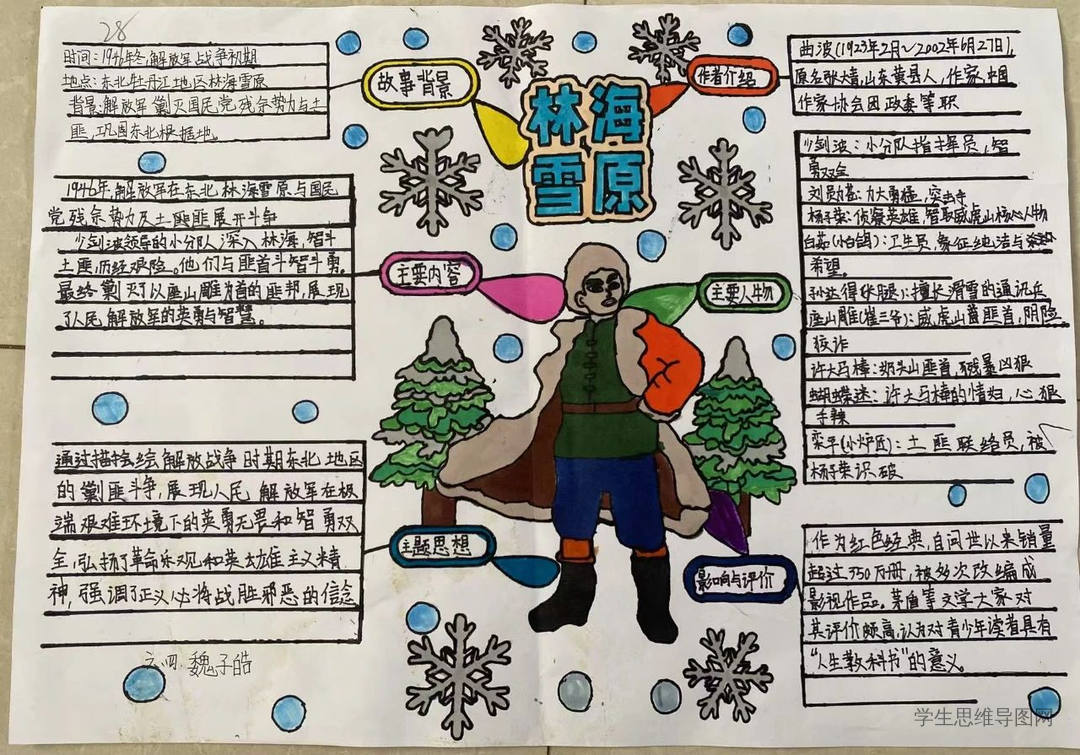 28
林海
雪原
故事背景
时间：1946年冬，解放军战争初期
地点：东北牡丹江地区林海雪原
背景：解放军剿灭国民党残余势力与土
匪，巩固东北根据地。
主要内容
1946年，解放军在东北林海雪原与国民
党残余势力及土匪匪展开斗争
少剑波领导的小分队深入林海，智斗
土匪，历经艰险。他们与匪首斗智斗勇。
最终剿灭了以座山雕为首的匪邦，展现
了人民解放军的英勇与智慧。
主题思想
通过描绘解放战争时期东北地区
的剿匪斗争，展现人民解放军在极
端艰难环境下的英勇无畏和智勇双
全，弘扬了革命乐观和英雄主义精
神，强调了正义必将战胜邪恶的信念
六四 魏子皓
作者介绍
曲波（1923年2月～2002年6月27日），
原名张大青，山东黄县人，作家，中国
作家协会团政委等职
主要人物
少剑波：小分队指挥员，智
勇双全
刘勋苍：力大勇猛，突击手
杨子荣：侦察英雄，智取威虎山核心人物
白茹（小白鸽）：卫生员，象征纯洁与
希望。
孙达得（长腿）：擅长滑雪的通讯兵
座山雕（崔三爷）：威虎山匪首，阴险
狡诈
许大马棒：奶头山匪首，残暴凶狠
蝴蝶迷：许大马棒的情妇，心狠
手辣
栾平（小炉匠）：土匪联络员，被
杨子荣识破
影响与评价
作为红色经典，自问世以来销量
超过350万册，被多次改编成
影视作品。茅盾等文学大家对
其评价颇高，认为对青少年读者具有
“人生教科书”的意义。
学生思维导图网